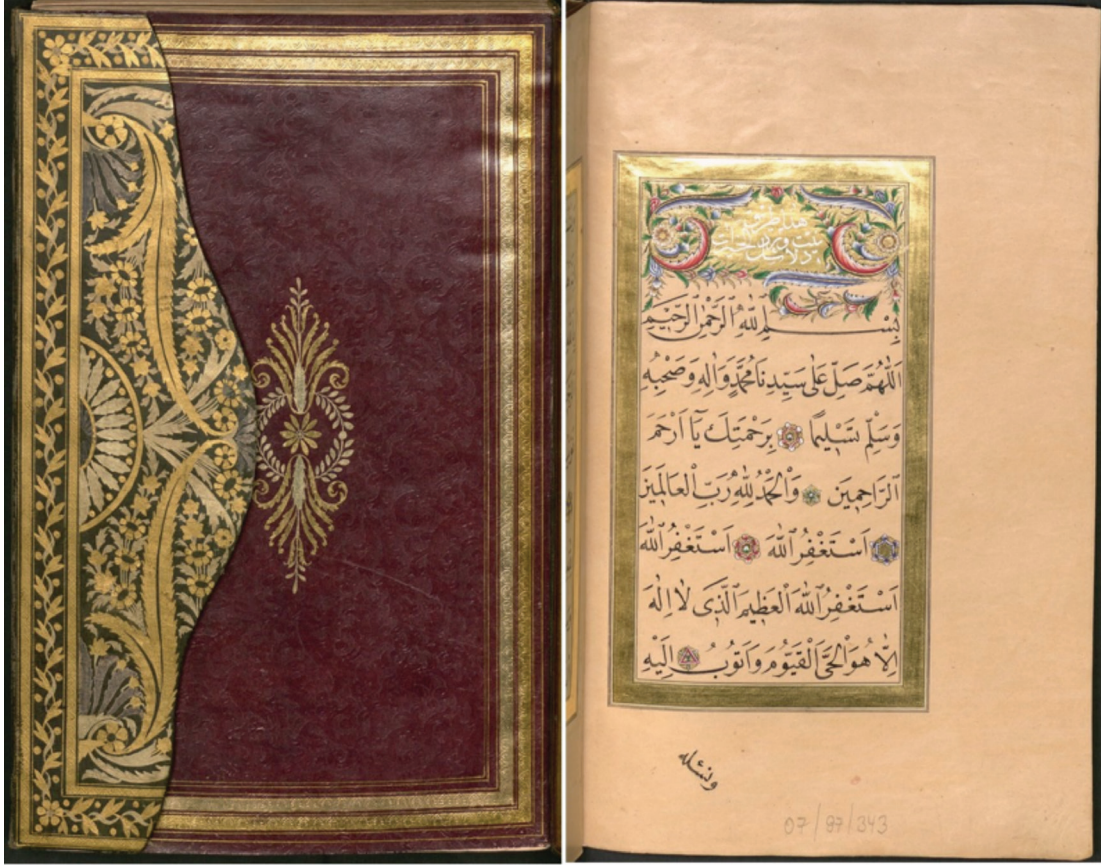 بِسْمِ ٱللّٰهِ ٱلرَّحْمٰنِ ٱلرَّحِيْمِ
اَللّٰهُمَّ صَلِّ عَلٰى سَيِّدِنَا مُحَمَّدٍ وَاٰلِهِ وَصَحْبِهِ
وَسَلِّمْ تَسْلِيمًا بِرَحْمَتِكَ يَآ اَرْحَمَ
ٱلرَّاحِمِينَ وَٱلْحَمْدُ لِلّٰهِ رَبِّ ٱلْعَالَمِينَ
اَسْتَغْفِرُ ٱللّٰهَ اَسْتَغْفِرُ ٱللّٰهَ
اَسْتَغْفِرُ ٱللّٰهَ ٱلْعَظِيمَ ٱلَّذِى لَا اِلٰهَ
اِلَّا هُوَ ٱلْحَىَّ ٱلْقَيُّومَ وَاَتُوبُ اِلَيْهِ
ونسئله
07/87/343